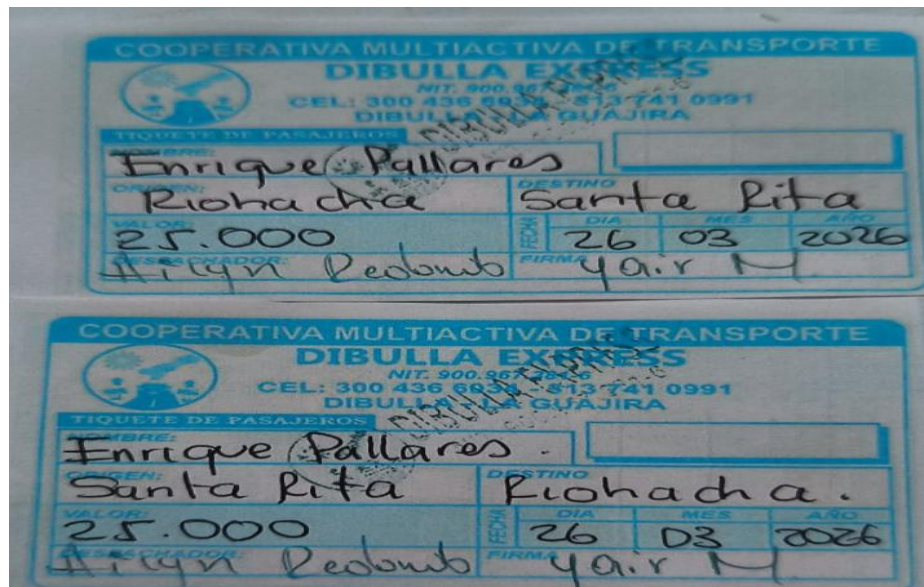 COOPERATIVA MULTIACTIVA DE TRANSPORTE
DIBULLA EXPRESS
NIT. 900.967
CEL: 300 436 6938 - 313 741 0991
DIBULLA - LA GUAJIRA
TIQUETE DE PASAJEROS
NOMBRE:
Enrique Pallares
ORIGEN: DESTINO
Riohacha Santa Rita
VALOR: FECHA DIA MES AÑO
25.000 26 03 2026
DESPACHADOR: FIRMA
Redondo Yair M.
COOPERATIVA MULTIACTIVA DE TRANSPORTE
DIBULLA EXPRESS
NIT. 900.967
CEL: 300 436 6938 - 313 741 0991
DIBULLA - LA GUAJIRA
TIQUETE DE PASAJEROS
NOMBRE:
Enrique Pallares.
ORIGEN: DESTINO
Santa Rita Riohacha.
VALOR: FECHA DIA MES AÑO
25.000 26 03 2026
DESPACHADOR: FIRMA
Redondo Yair M